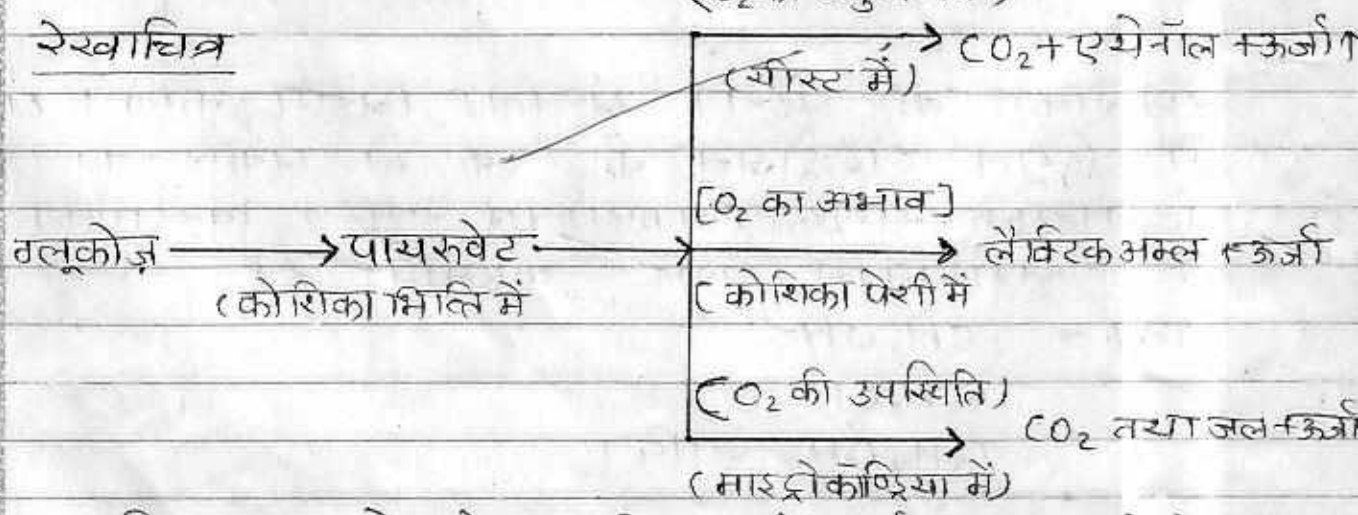 रेखाचित्र
CO₂ + एथेनॉल + ऊर्जा↑
(यीस्ट में)
[O₂ का अभाव]
ग्लूकोज़ → पायरुवेट → लैक्टिक अम्ल + ऊर्जा
(कोशिका भित्ति में
(कोशिका पेशी में
(O₂ की उपस्थिति)
CO₂ तथा जल + ऊर्जा
(माइट्रोकॉण्ड्रिया में)